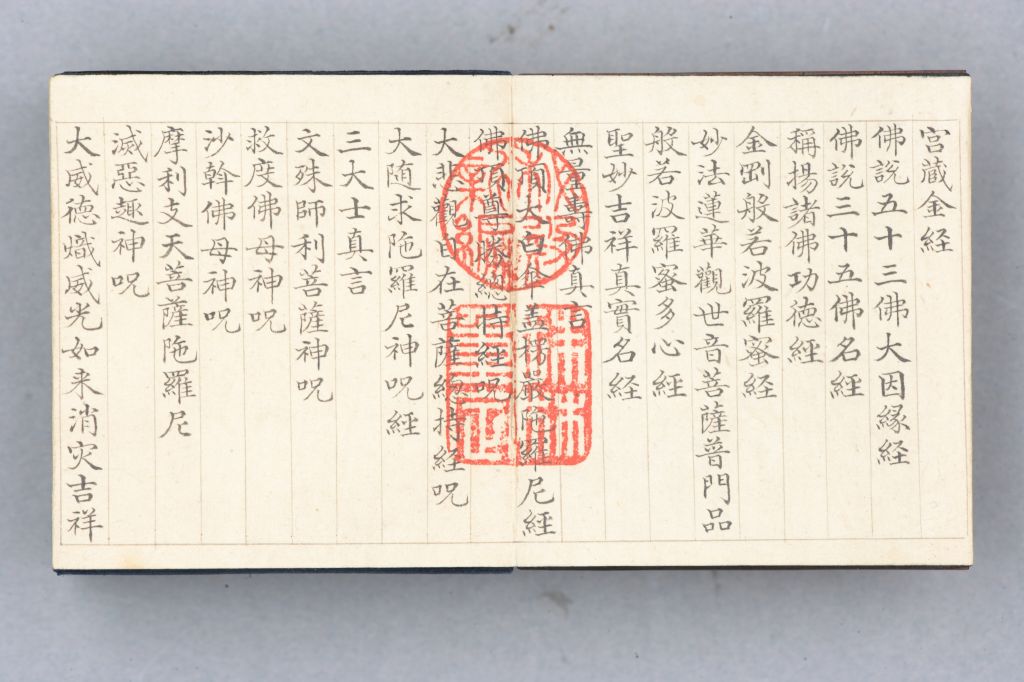 宫蔵金経
佛說五十三佛大因縁経
佛說三十五佛名經
稱揚諸佛功德經
金剛般若波羅蜜経
妙法蓮華觀世音菩薩普門品
般若波羅蜜多心經
聖妙吉祥真實名経
無量壽佛真言
佛頂大白傘盖楞嚴陁羅尼經
佛頂尊勝總持經呪
大悲觀自在菩薩緫持經呪
大随求陁羅尼神呪經
三大士真言
文殊師利菩薩神呪
救度佛母神呪
沙斡佛母神呪
摩利支天菩薩陁羅尼
滅惡趣神呪
大威德熾威光如来消灾吉祥